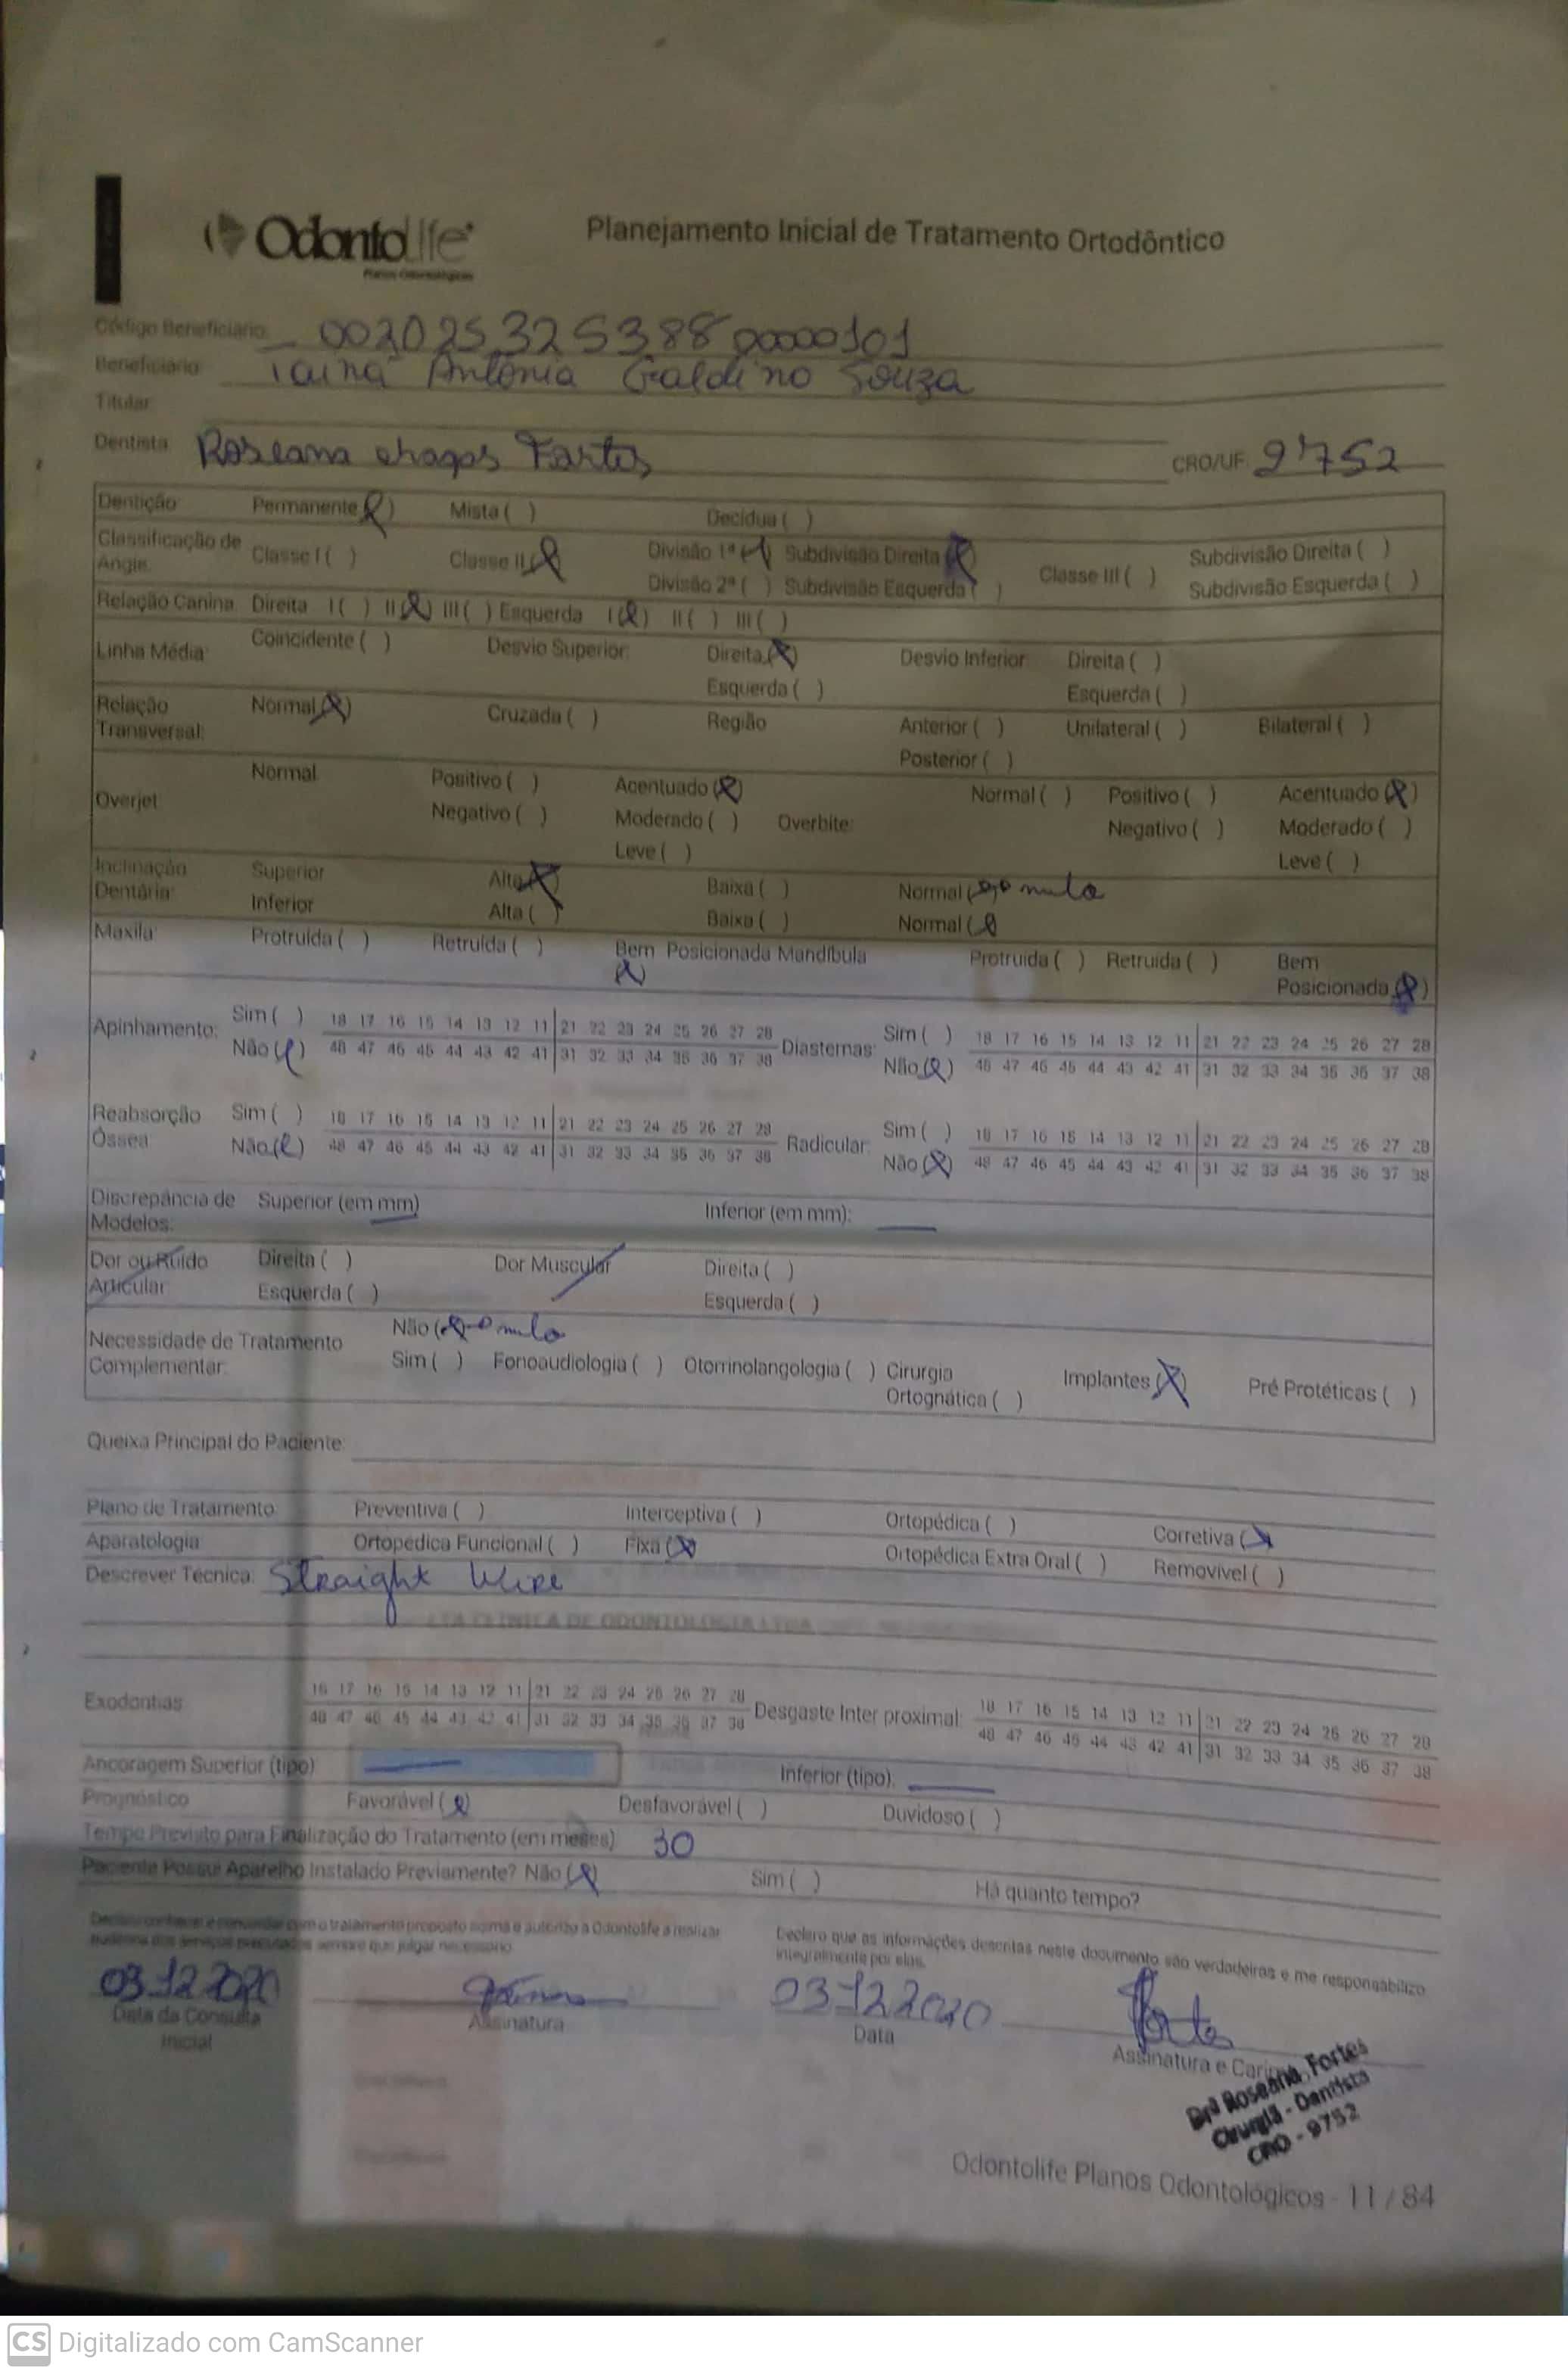 Odontolife
Planos Odontológicos
Planejamento Inicial de Tratamento Ortodôntico
Código Beneficiário: 00202532538800000101
Beneficiário: Tainá Antônia Galdino Souza
Titular:
Dentista: Roseana chagas Fortes CRO/UF: 9752
Dentição: Permanente (X) Mista ( ) Decídua ( )
Classificação de Angle: Classe I ( ) Classe II (X) Divisão 1ª (X) Subdivisão Direita (X) Classe III ( ) Subdivisão Direita ( )
Divisão 2ª ( ) Subdivisão Esquerda ( ) Subdivisão Esquerda ( )
Relação Canina: Direita I ( ) II (X) III ( ) Esquerda I (X) II ( ) III ( )
Linha Média: Coincidente ( ) Desvio Superior: Direita (X) Desvio Inferior: Direita ( )
Esquerda ( ) Esquerda ( )
Relação Transversal: Normal (X) Cruzada ( ) Região Anterior ( ) Unilateral ( ) Bilateral ( )
Posterior ( )
Overjet Normal Positivo ( ) Acentuado (X) Overbite: Normal ( ) Positivo ( ) Acentuado (X)
Negativo ( ) Moderado ( ) Negativo ( ) Moderado ( )
Leve ( ) Leve ( )
Inclinação Dentária: Superior Alta (X) Baixa ( ) Normal (X) nulo
Inferior Alta ( ) Baixa ( ) Normal (X)
Maxila: Protruída ( ) Retruída ( ) Bem Posicionada (X) Mandíbula Protruida ( ) Retruida ( ) Bem Posicionada (X)
Apinhamento: Sim ( ) 18 17 16 15 14 13 12 11 21 22 23 24 25 26 27 28 Diastemas: Sim ( ) 18 17 16 15 14 13 12 11 21 22 23 24 25 26 27 28
Não (X) 48 47 46 45 44 43 42 41 31 32 33 34 35 36 37 38 Não (X) 48 47 46 45 44 43 42 41 31 32 33 34 35 36 37 38
Reabsorção Óssea Sim ( ) 18 17 16 15 14 13 12 11 21 22 23 24 25 26 27 28 Radicular: Sim ( ) 18 17 16 15 14 13 12 11 21 22 23 24 25 26 27 28
Não (X) 48 47 46 45 44 43 42 41 31 32 33 34 35 36 37 38 Não (X) 48 47 46 45 44 43 42 41 31 32 33 34 35 36 37 38
Discrepância de Modelos: Superior (em mm) Inferior (em mm):
Dor ou Ruído Articular Direita ( ) Dor Muscular Direita ( )
Esquerda ( ) Esquerda ( )
Necessidade de Tratamento Complementar: Não (X) nulo
Sim ( ) Fonoaudiologia ( ) Otorrinolangologia ( ) Cirurgia Ortognática ( ) Implantes (X) Pré Protéticas ( )
Queixa Principal do Paciente:
Plano de Tratamento Preventiva ( ) Interceptiva ( ) Ortopédica ( ) Corretiva (X)
Aparatologia Ortopedica Funcional ( ) Fixa (X) Ortopédica Extra Oral ( ) Removível ( )
Descrever Técnica: Straight Wire
Exodontias 18 17 16 15 14 13 12 11 21 22 23 24 25 26 27 28 Desgaste Inter proximal: 18 17 16 15 14 13 12 11 21 22 23 24 25 26 27 28
48 47 46 45 44 43 42 41 31 32 33 34 35 36 37 38 48 47 46 45 44 43 42 41 31 32 33 34 35 36 37 38
Ancoragem Superior (tipo) Inferior (tipo):
Prognóstico Favorável (X) Desfavorável ( ) Duvidoso ( )
Tempo Previsto para Finalização do Tratamento (em meses) 30
Paciente Possui Aparelho Instalado Previamente? Não (X) Sim ( ) Há quanto tempo?
Declaro conhecer e concordar com o tratamento proposto acima e autorizo a Odontolife a realizar
auditoria dos serviços executados sempre que julgar necessário.
Declaro que as informações descritas neste documento são verdadeiras e me responsabilizo
integralmente por elas.
03 12 2020 03 12 2020 Fortes
Data da Consulta Inicial Assinatura Data Assinatura e Carimbo
Drª Roseana Fortes
Cirurgiã - Dentista
CRO - 9752
Odontolife Planos Odontológicos - 11 / 84
CS Digitalizado com CamScanner